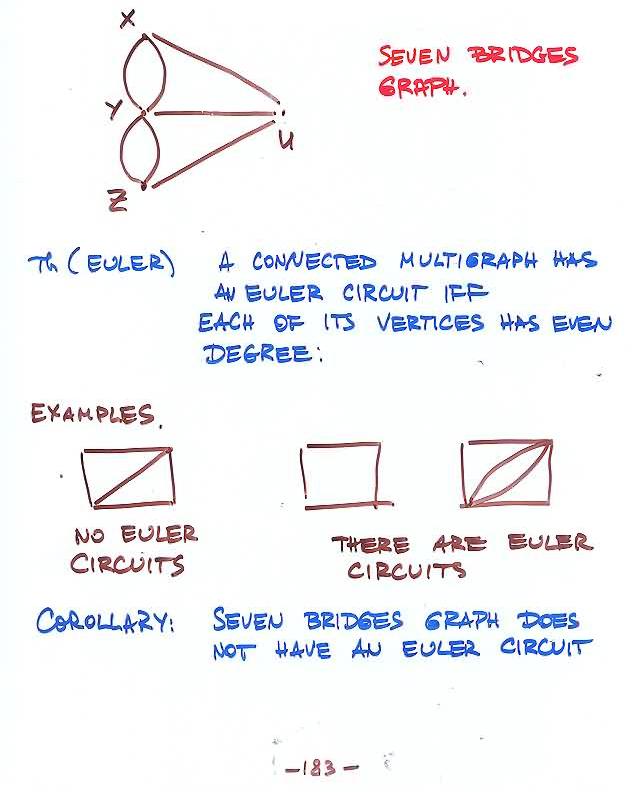 X
SEVEN BRIDGES
GRAPH.
Y
U
Z
Th (EULER) A CONNECTED MULTIGRAPH HAS
AN EULER CIRCUIT IFF
EACH OF ITS VERTICES HAS EVEN
DEGREE:
EXAMPLES.
NO EULER
CIRCUITS
THERE ARE EULER
CIRCUITS
COROLLARY: SEVEN BRIDGES GRAPH DOES
NOT HAVE AN EULER CIRCUIT
-183-